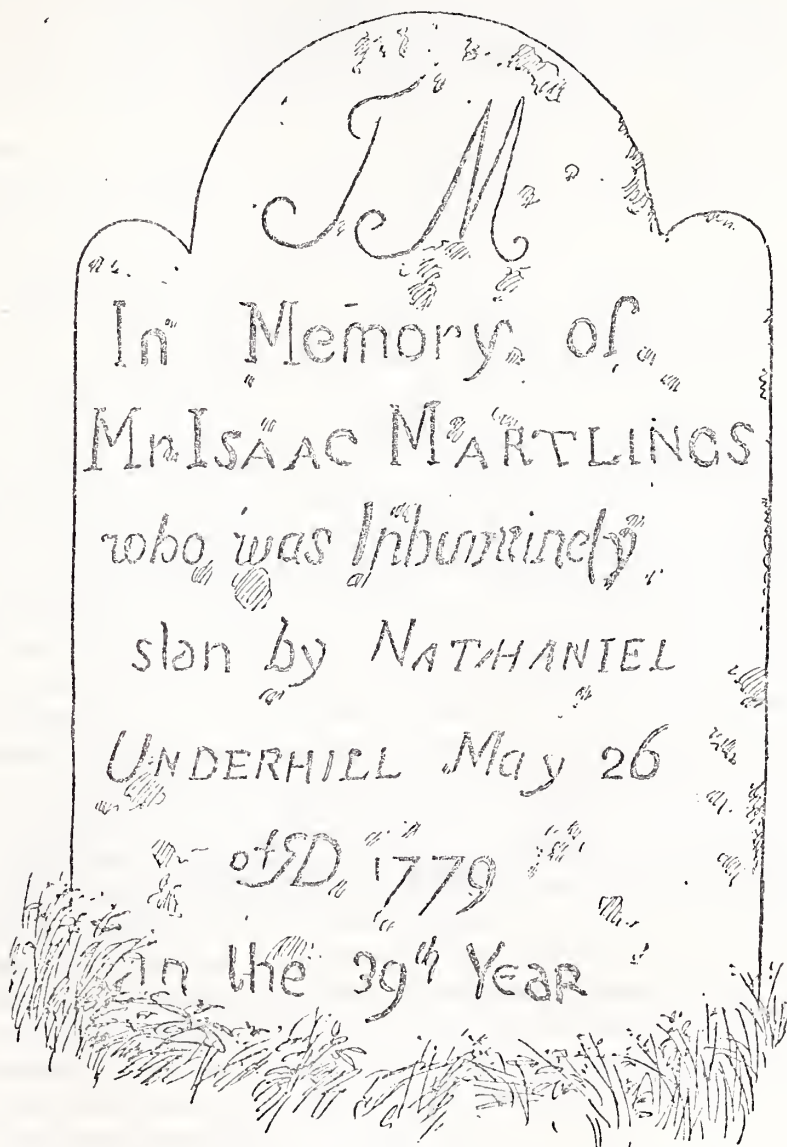 I M
In Memory of
Mr ISAAC MARTLINGS
who was Inhumanely
slan by NATHANIEL
UNDERHILL May 26
of AD 1779
in the 39th YEAR